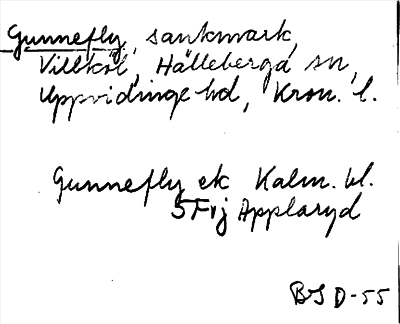 Gunnefly, sankmark,
Villköl, Hälleberga sn,
Uppvidinge hd, Kron. l.
Gunnefly ek Kalm. bl.
5 Fvj Applaryd
BJD-55